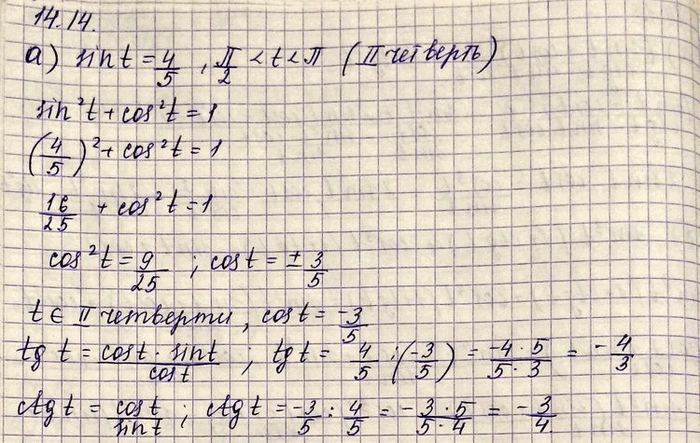 14.14.
а) sin t = 4/5 , π/2 < t < π (II четверть)
sin²t + cos²t = 1
(4/5)² + cos²t = 1
16/25 + cos²t = 1
cos²t = 9/25 ; cos t = ± 3/5
t ∈ II четверти, cos t = -3/5
tg t = cos t · sin t / cos t ; tg t = 4/5 : (-3/5) = -4·5/5·3 = -4/3
ctg t = cos t / sin t ; ctg t = -3/5 : 4/5 = -3·5/5·4 = -3/4.